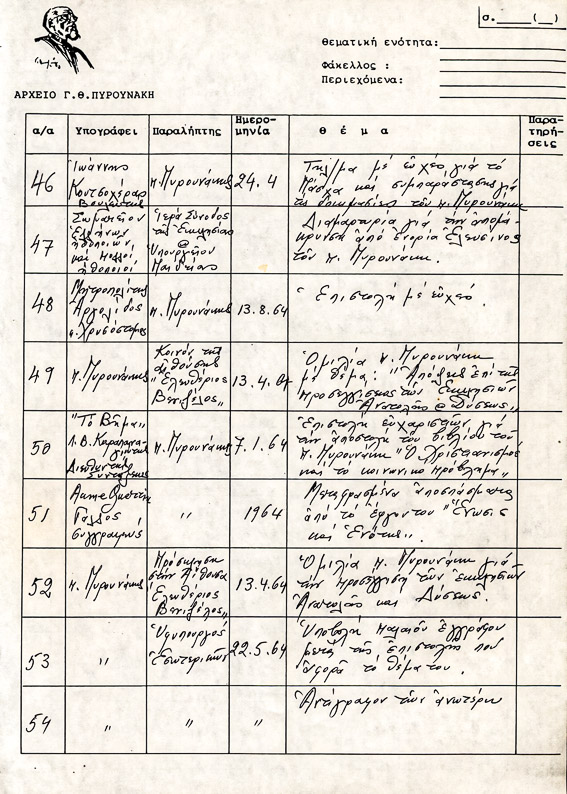 σ.____(__)
Θεματική ενότητα:
Φάκελλος :
Περιεχόμενα:
ΑΡΧΕΙΟ Γ.Θ.ΠΥΡΟΥΝΑΚΗ
α/α Υπογράφει Παραλήπτης Ημερο-μηνία Θ έ μ α Παρα-τηρή-σεις
46
Ἰωάννης
Κουτσοχέρας
Βουλευτής
π. Πυρουνάκης
24.4
Τηλ/μα μέ εὐχές γιά τό
Πάσχα καί συμπαράστασης γιά
τίς π. Πυρουνάκη
47
Σωματεῖον
Ἑλλήνων
ἠθοποιῶν
καί πολλοί
ἠθοποιοί
Ἱερά Σύνοδος
τῆς Ἐκκλησίας
Ὑπουργεῖον
Παιδείας
Διαμαρτυρία γιά τήν ἀπομά-
κρυνση ἀπό ἐνορία Ἐλευσῖνος
τοῦ π. Πυρουνάκη.
48
Μητροπολίτης
Ἀργολίδος
κ. Χρυσόστομος
π. Πυρουνάκης
13.8.64
Ἐπιστολή μέ εὐχές.
49
π. Πυρουνάκης
Κοινόν τῆς
αἰθούσης
"Ἐλευθέριος
Βενιζέλος"
13.4.64
Ὁμιλία π. Πυρουνάκη
μέ θέμα: "Ἀπόψεις ἐπί τῆς
προσεγγίσεως τῶν Ἐκκλησιῶν
Ἀνατολῆς & Δύσεως"
50
"Τό Βῆμα"
Λ.Β. Καραπανα-
γιώτης
Διευθυντής
Συντάξεως
π. Πυρουνάκης
7.1.64
Ἐπιστολή εὐχαριστιῶν γιά
τήν ἀποστολή τοῦ βιβλίου τοῦ
π. Πυρουνάκη "Ὁ Χριστιανισμός
καί τό κοινωνικό πρόβλημα"
51
Γάλλος
συγγραφεύς
"
1964
Μεταφρασμένα ἀποσπάσματα
ἀπό τό ἔργον του "Ἕνωσις
καί Ἑνότης".
52
π. Πυρουνάκης
Πρόσκληση
στήν Αἴθουσα
Ἐλευθέριος
Βενιζέλος"
13.4.64
Ὁμιλία π. Πυρουνάκη γιά
τήν προσέγγιση τῶν ἐκκλησιῶν
Ἀνατολῆς καί Δύσεως.
53
"
Ὑφυπουργός
Ἐσωτερικῶν
22.5.64
Ὑποβολή παλαιοῦ ἐγγράφου
μετά τῆς ἐπιστολῆς πού
ἀφορᾶ τό θέμα του.
54
"
"
"
Ἀντίγραφον τῶν ἀνωτέρω